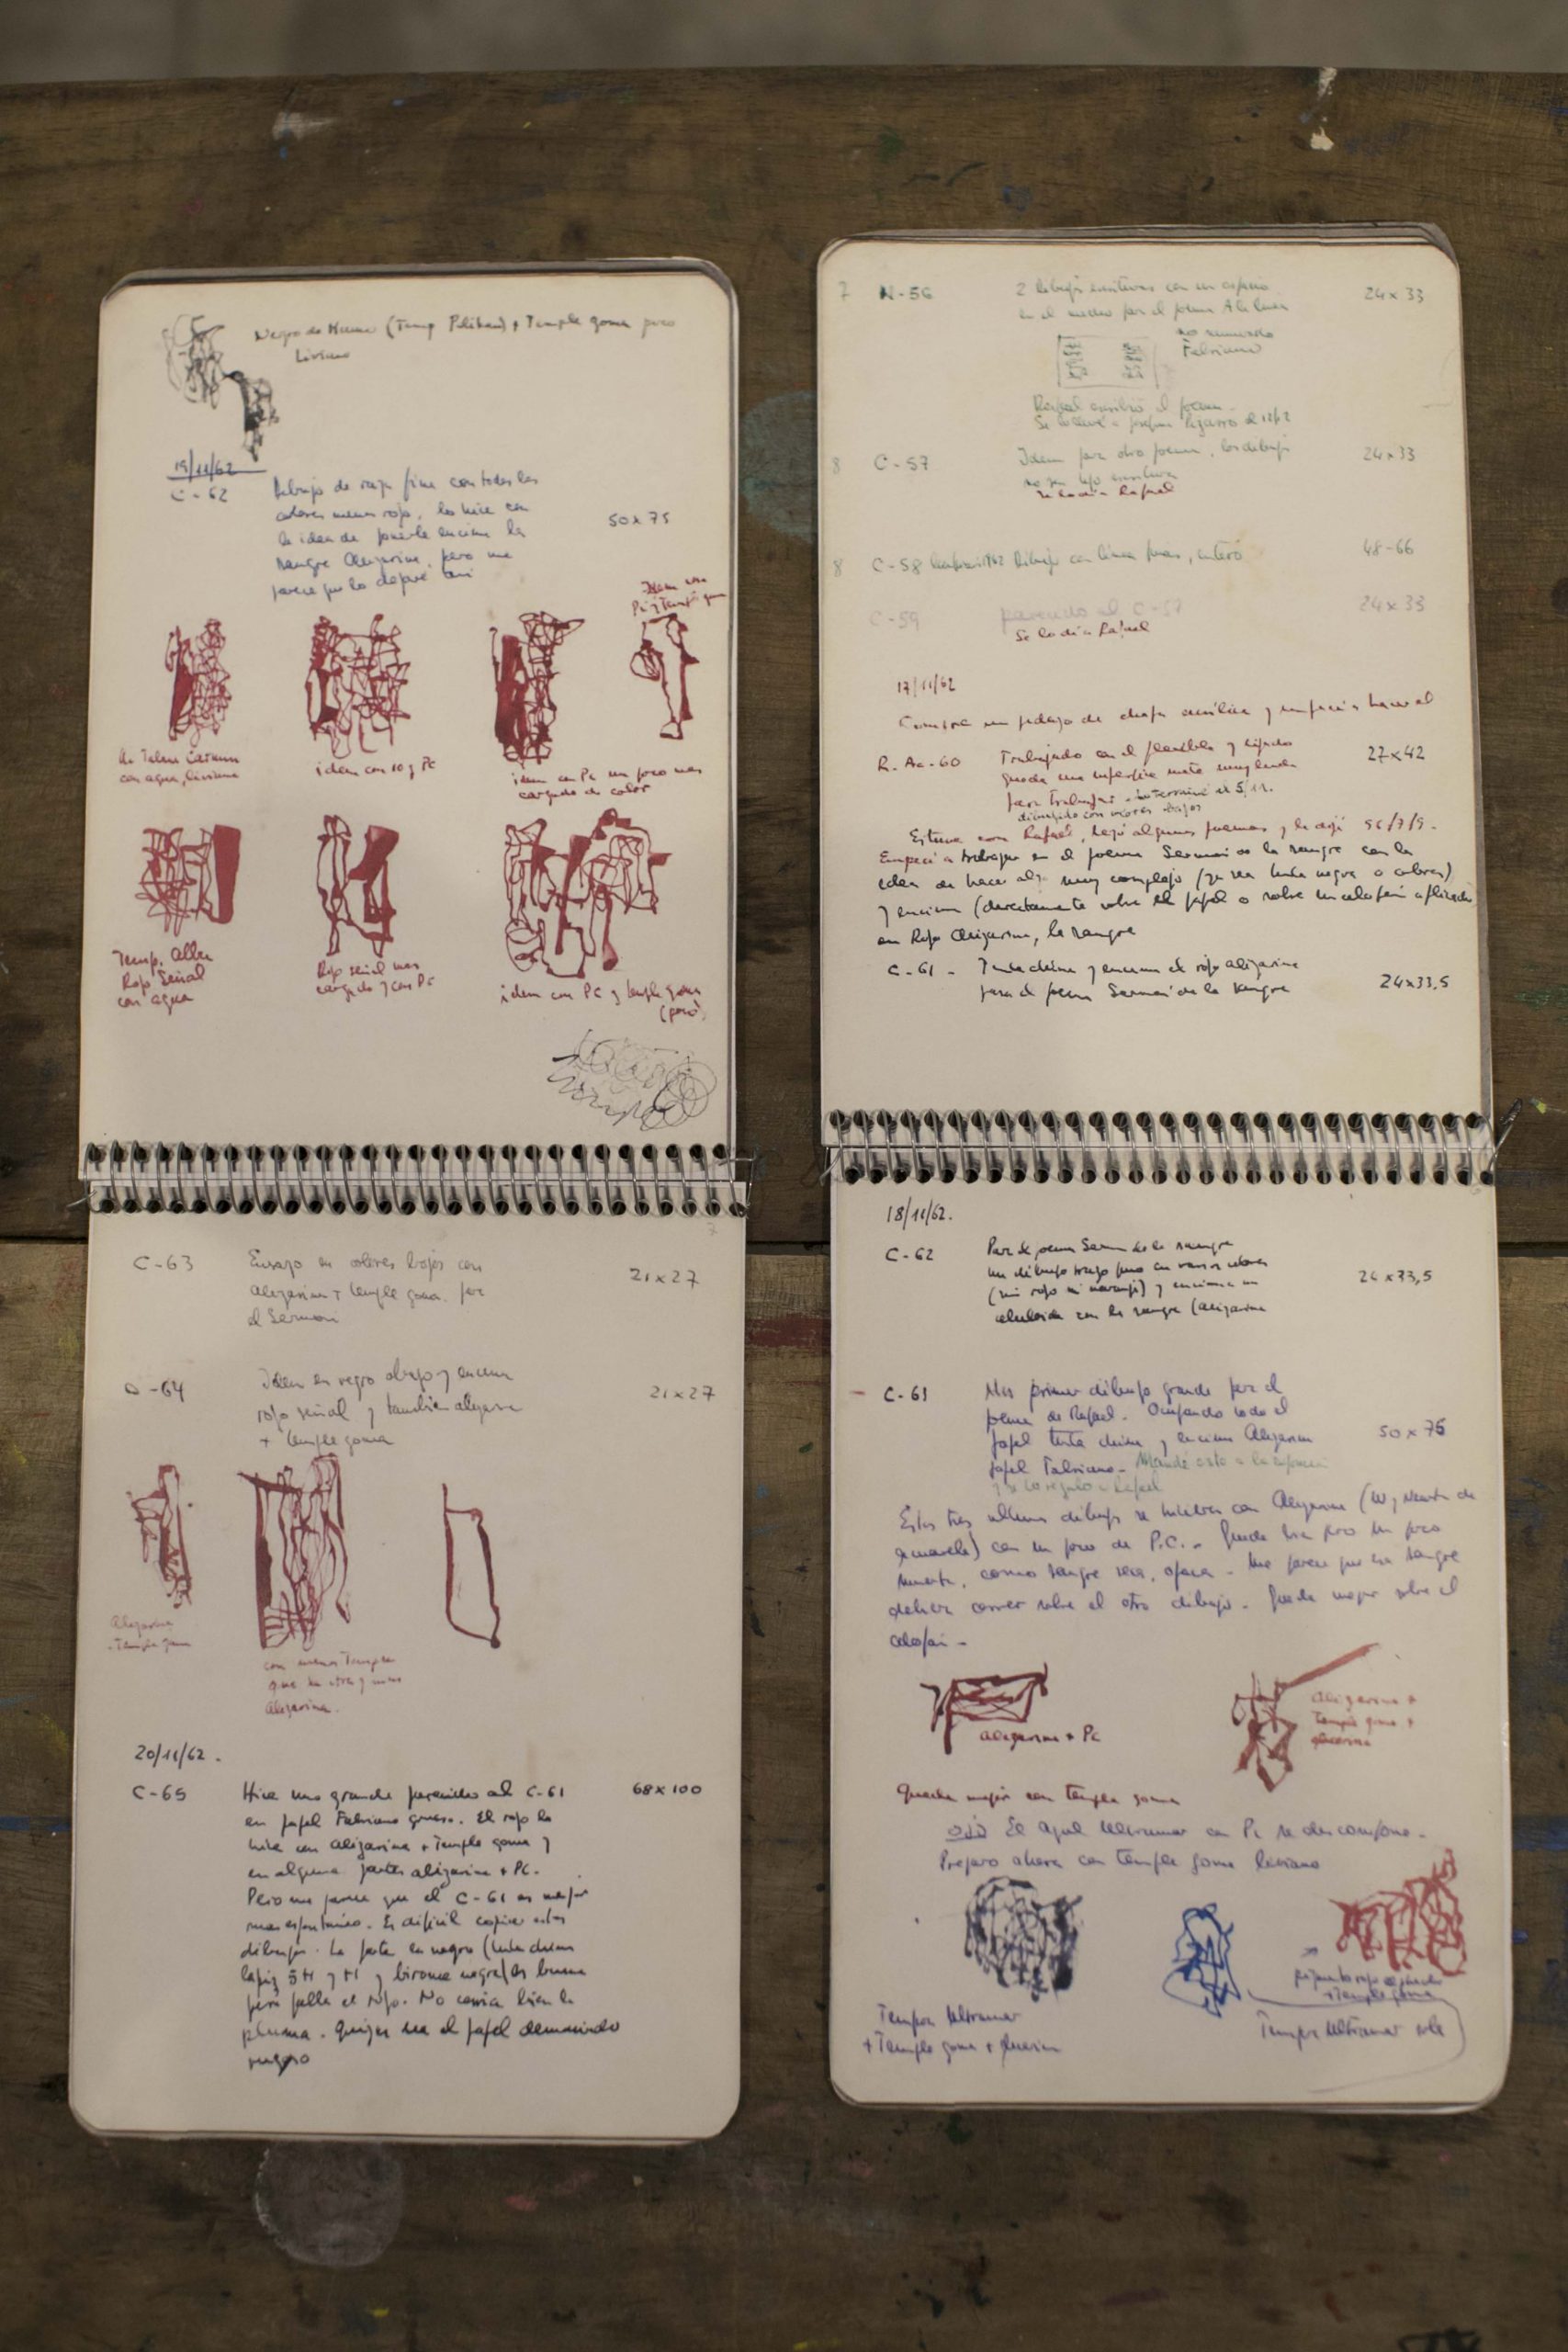 Negro de Humo (Temp Pelikan) + Temple goma poco
Liviano
19/11/62
C-62
Dibujo de raya fina con todos los
colores menos rojo, los hice con
la idea de ponerle encima la
sangre Alizarina, pero me
parece que lo dejaré así
50 x 75
Idem con
Pc y Temp goma
con agua, liviano
idem con 10 g Pc
idem con Pc un poco mas
cargado de color
Temp.
Rojo Señal
con agua
Rojo señal mas
cargado y con Pc
idem con Pc y temple goma
(poco)
C-63
Ensayo en colores bajos con
alizarina + temple goma. por
el Sermón
21 x 27
-64
Idem en negro abajo y encima
rojo señal y también alizarina
+ temple goma
21 x 27
Alizarina
+ Temple goma
con menos Temple
que la otra y mas
Alizarina.
20/11/62.
C-65
Hice uno grande parecido al C-61
68 x 100
en papel Fabriano grueso. El rojo lo
hice con alizarina + Temple goma y
en alguna partes alizarina + PC.
Pero me parece que el C-61 es mejor
mas espontáneo. Es difícil copiar estos
dibujos. La parte en negro (tinta china
lapiz 5H y H y birome negra) es buena
pero falla el rojo. No corria bien la
pluma. Quizas sea el papel demasiado
rugoso
7
N-56
2 dibujos escritura con un espacio
24 x 33
en el medio por el poema A la
no numerado
Fabriano
Rafael escribió el poema.
Se lo llevé a Josefina Pizarro el 12/12
8
C-57
Idem para otro poema, los dibujos
24 x 33
no son tipo escritura
Se lo di a Rafael
8
C-58
Dibujo con línea fina, entero
48-66
C-59
parecido al C-57
24 x 33
Se lo di a Rafael
17/11/62
Compré un pedazo de chapa acrílica y empecé a hacer el
R. Ac-60
Trabajado con el flexible y lijado
27 x 42
queda una superficie mate muy linda
para trabajar. Lo terminé el 5/11.
dibujado con colores bajos
Estuve con Rafael, dejó algunos poemas y le dejé 56/7/9.
Empecé a trabajar en el poema Sermón de la sangre con la
idea de hacer algo muy complejo (ya sea tinta negra o colores)
y encima (directamente sobre el papel o sobre un celofán aplicado)
en Rojo Alizarina, la sangre
C-61 -
Tinta china y encima el rojo alizarina
para el poema Sermón de la sangre
24 x 33,5
18/11/62.
C-62
Para el poema Sermón de la sangre
un dibujo trazo fino con varios colores
(ni rojo ni naranja) y encima un
celuloide con la sangre (alizarina
24 x 33,5
C-61
Mi primer dibujo grande por el
poema de Rafael. Ocupando todo el
papel tinta china y encima Alizarina
papel Fabriano. Mandé esto a la exposición
y se lo regalo a Rafael
50 x 75
Estos tres ultimos dibujos se hicieron con Alizarina (W y Newton de
acuarela) con un poco de P.C. - Queda bien pero un poco
muerta, como sangre seca, opaca - Me parece que esa sangre
debiera correr sobre el otro dibujo. Queda mejor sobre el
celofán -
alizarina + Pc
alizarina +
Temple goma +
glicerina
Queda mejor con temple goma
OJO El azul Ultramar con Pc se descompone.
Preparo ahora con temple goma liviano
Tempera Ultramar
+ Temple goma + glicerina
+ Temple goma
Tempera Ultramar sola